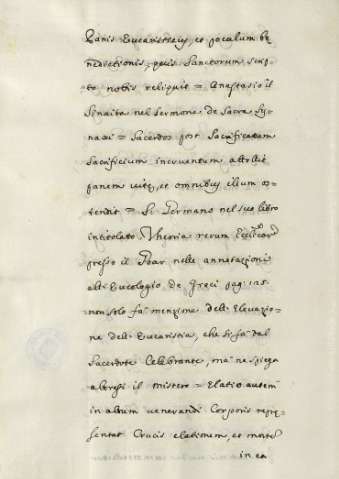 Panis Eucaristicus, et poculum be
nedictionis, quis Sanctorum scrip
to nobis reliquit = Anastasio il
Sinaita nel Sermone de Sacra Sy-
naxi = Sacerdos post Sacrificatum
Sacrificium incruentum attollit
panem vitę, et omnibus illum os-
tendit = S. Germano nel suo libro
intitolato Theoria rerum
presso il Goar nelle annotazioni
all' Eucologio de Greci pag: 125.
non solo fa menzione dell' Elevazio-
ne dell' Eucaristia, che si fà dal
Sacerdote Celebrante, mà ne spiega
altresi il mistero = Elatio autem
in altum venerandi Corporis repre-
sentat Crucis elationem, et morte
in ea